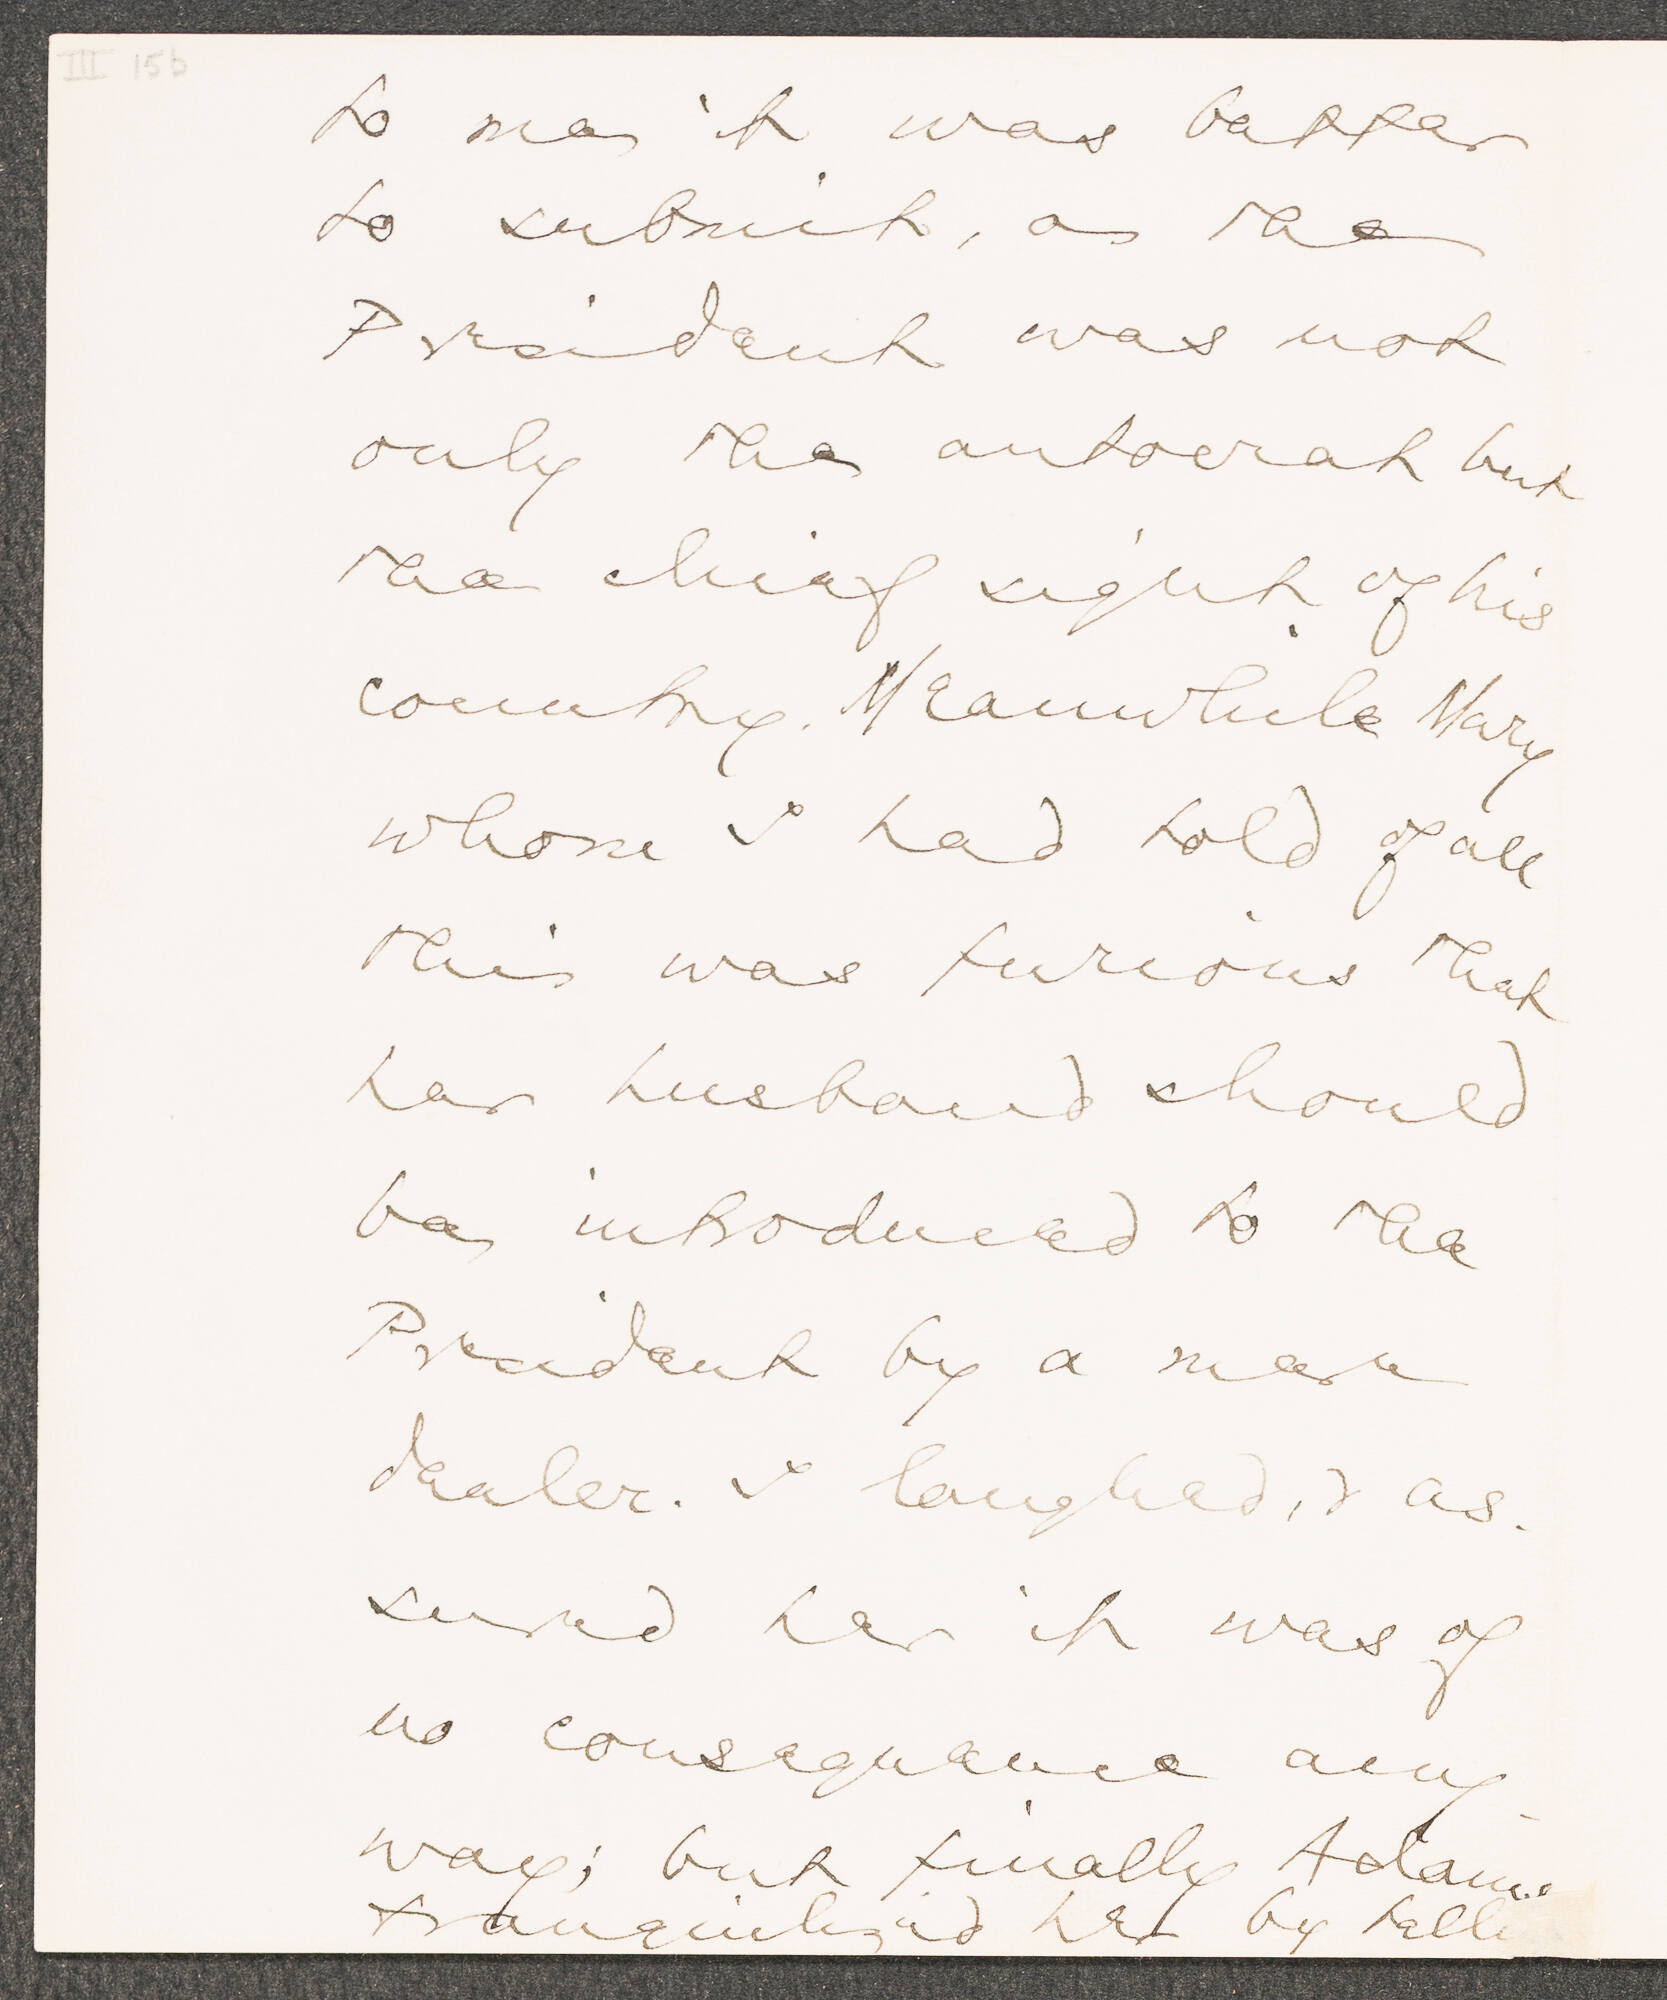 III 15b
to me, it was better
to submit, as the
President was not
only the autocrat but
the chief sight of his
country. Meanwhile Mary
whom I had told of all
this was furious that
her husband should
be introduced to the
President by a mere
dealer. I laughed, & as-
sured her it was of
no consequence any-
way; but finally Adams
tranquilized her by telli